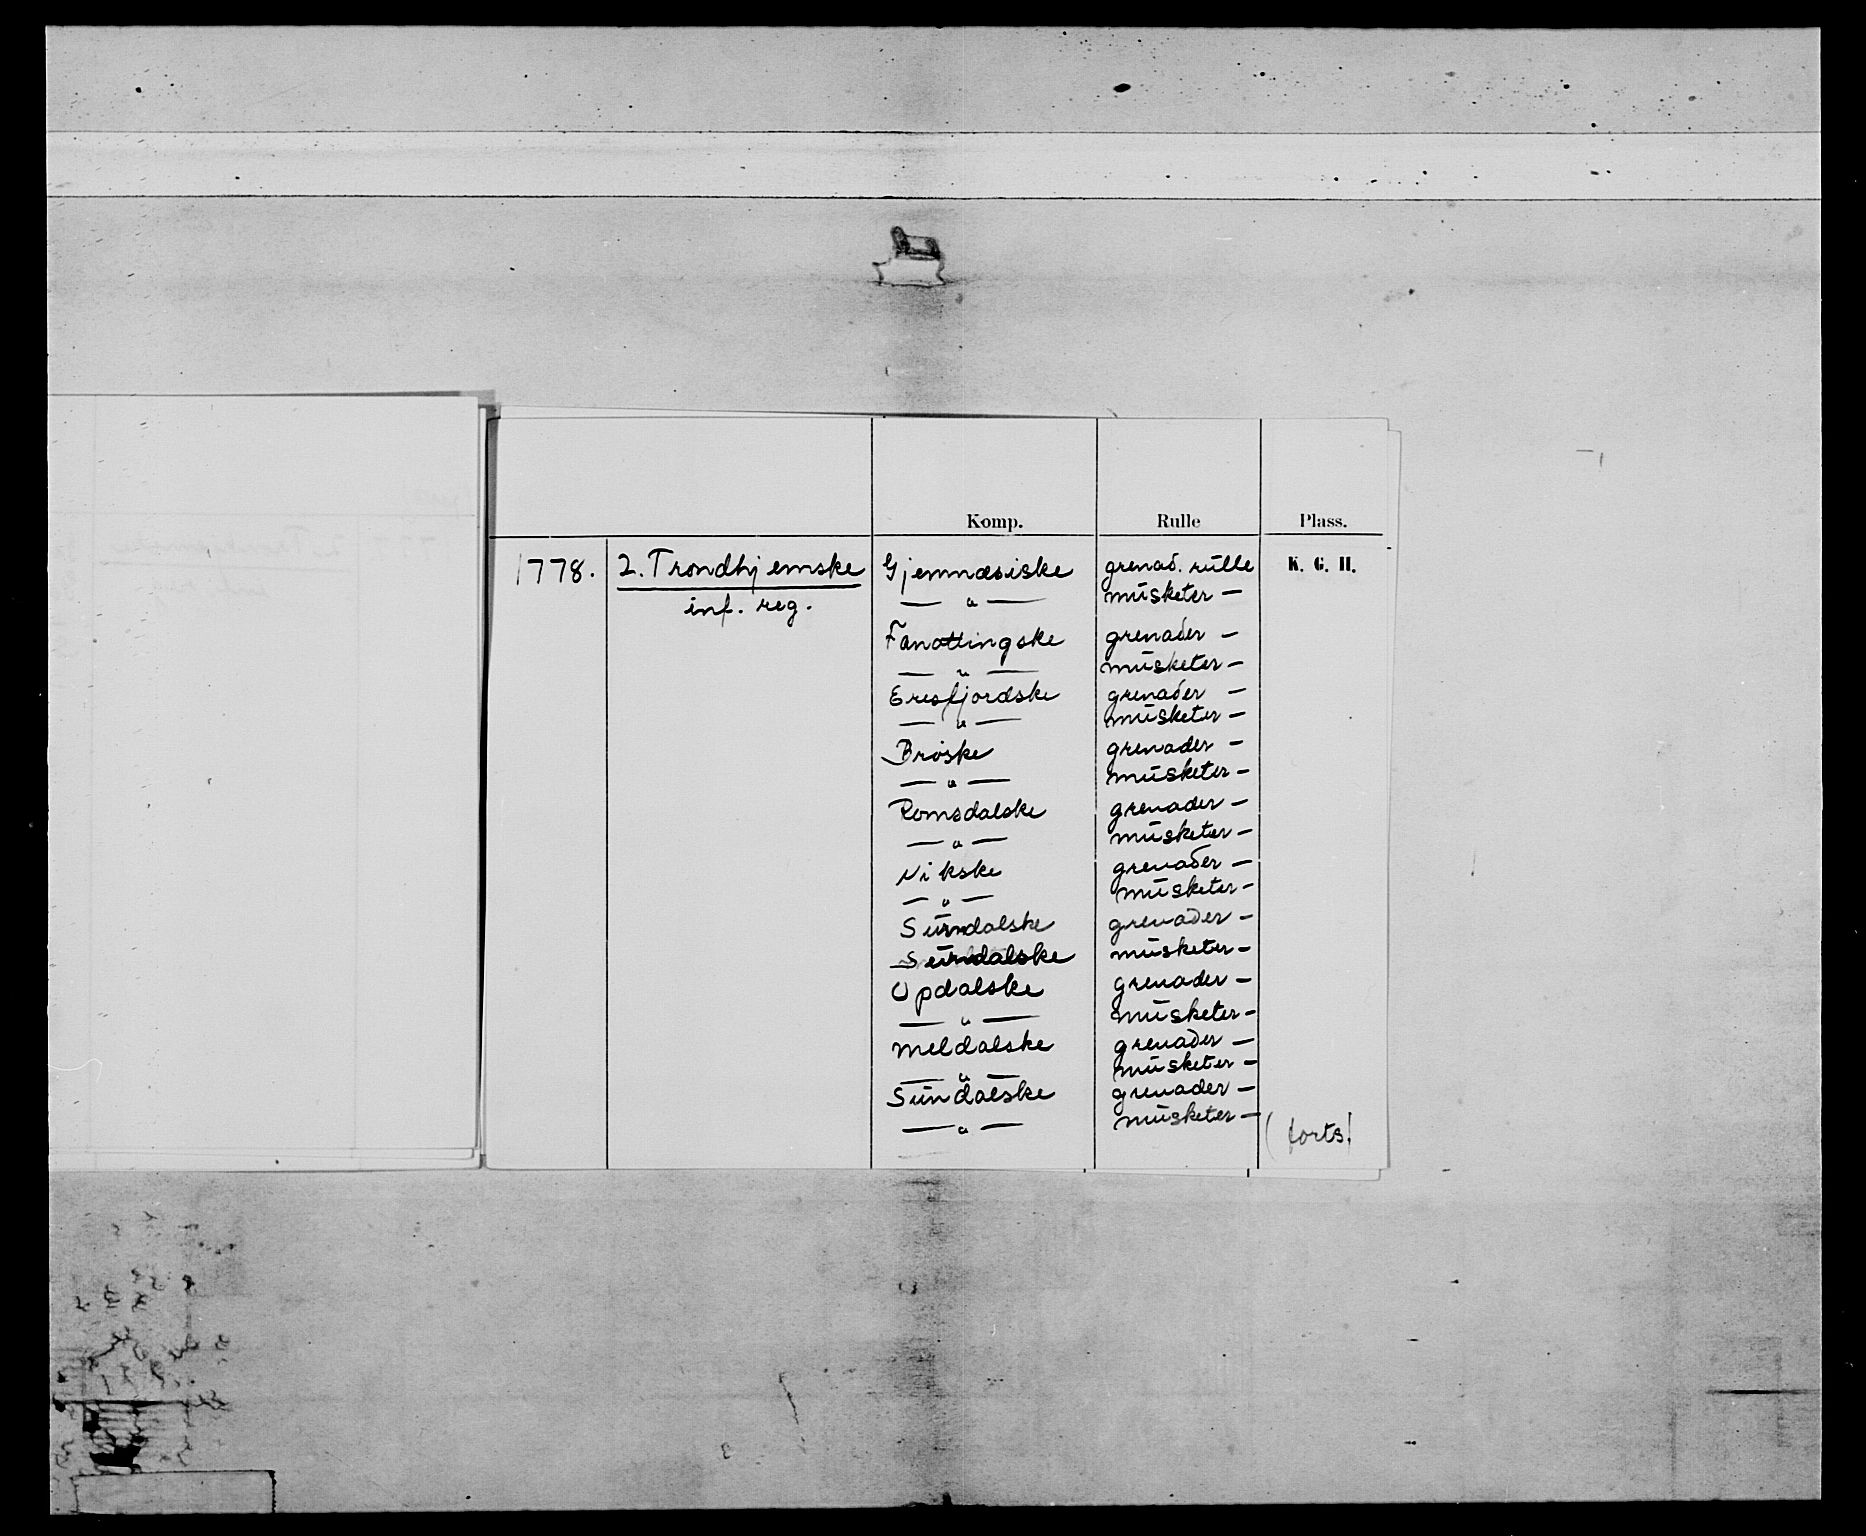 Komp. Rulle Plass.
1778. 2. Trondhjemske Gjemnæsiske grenad. rulle K. G. H.
inf. reg. — " — musketer —
Fanottingske grenader —
— " — musketer —
Eresfjordske grenader —
— " — musketer —
Brøske grenader —
— " — musketer —
Romsdalske grenader —
— " — musketer —
Vikske grenader —
— " — musketer —
Surndalske grenader —
Surndalske musketer —
Opdalske grenader —
— " — musketer —
Meldalske grenader —
— " — musketer —
Sundalske grenader —
— " — musketer —
(forts.)